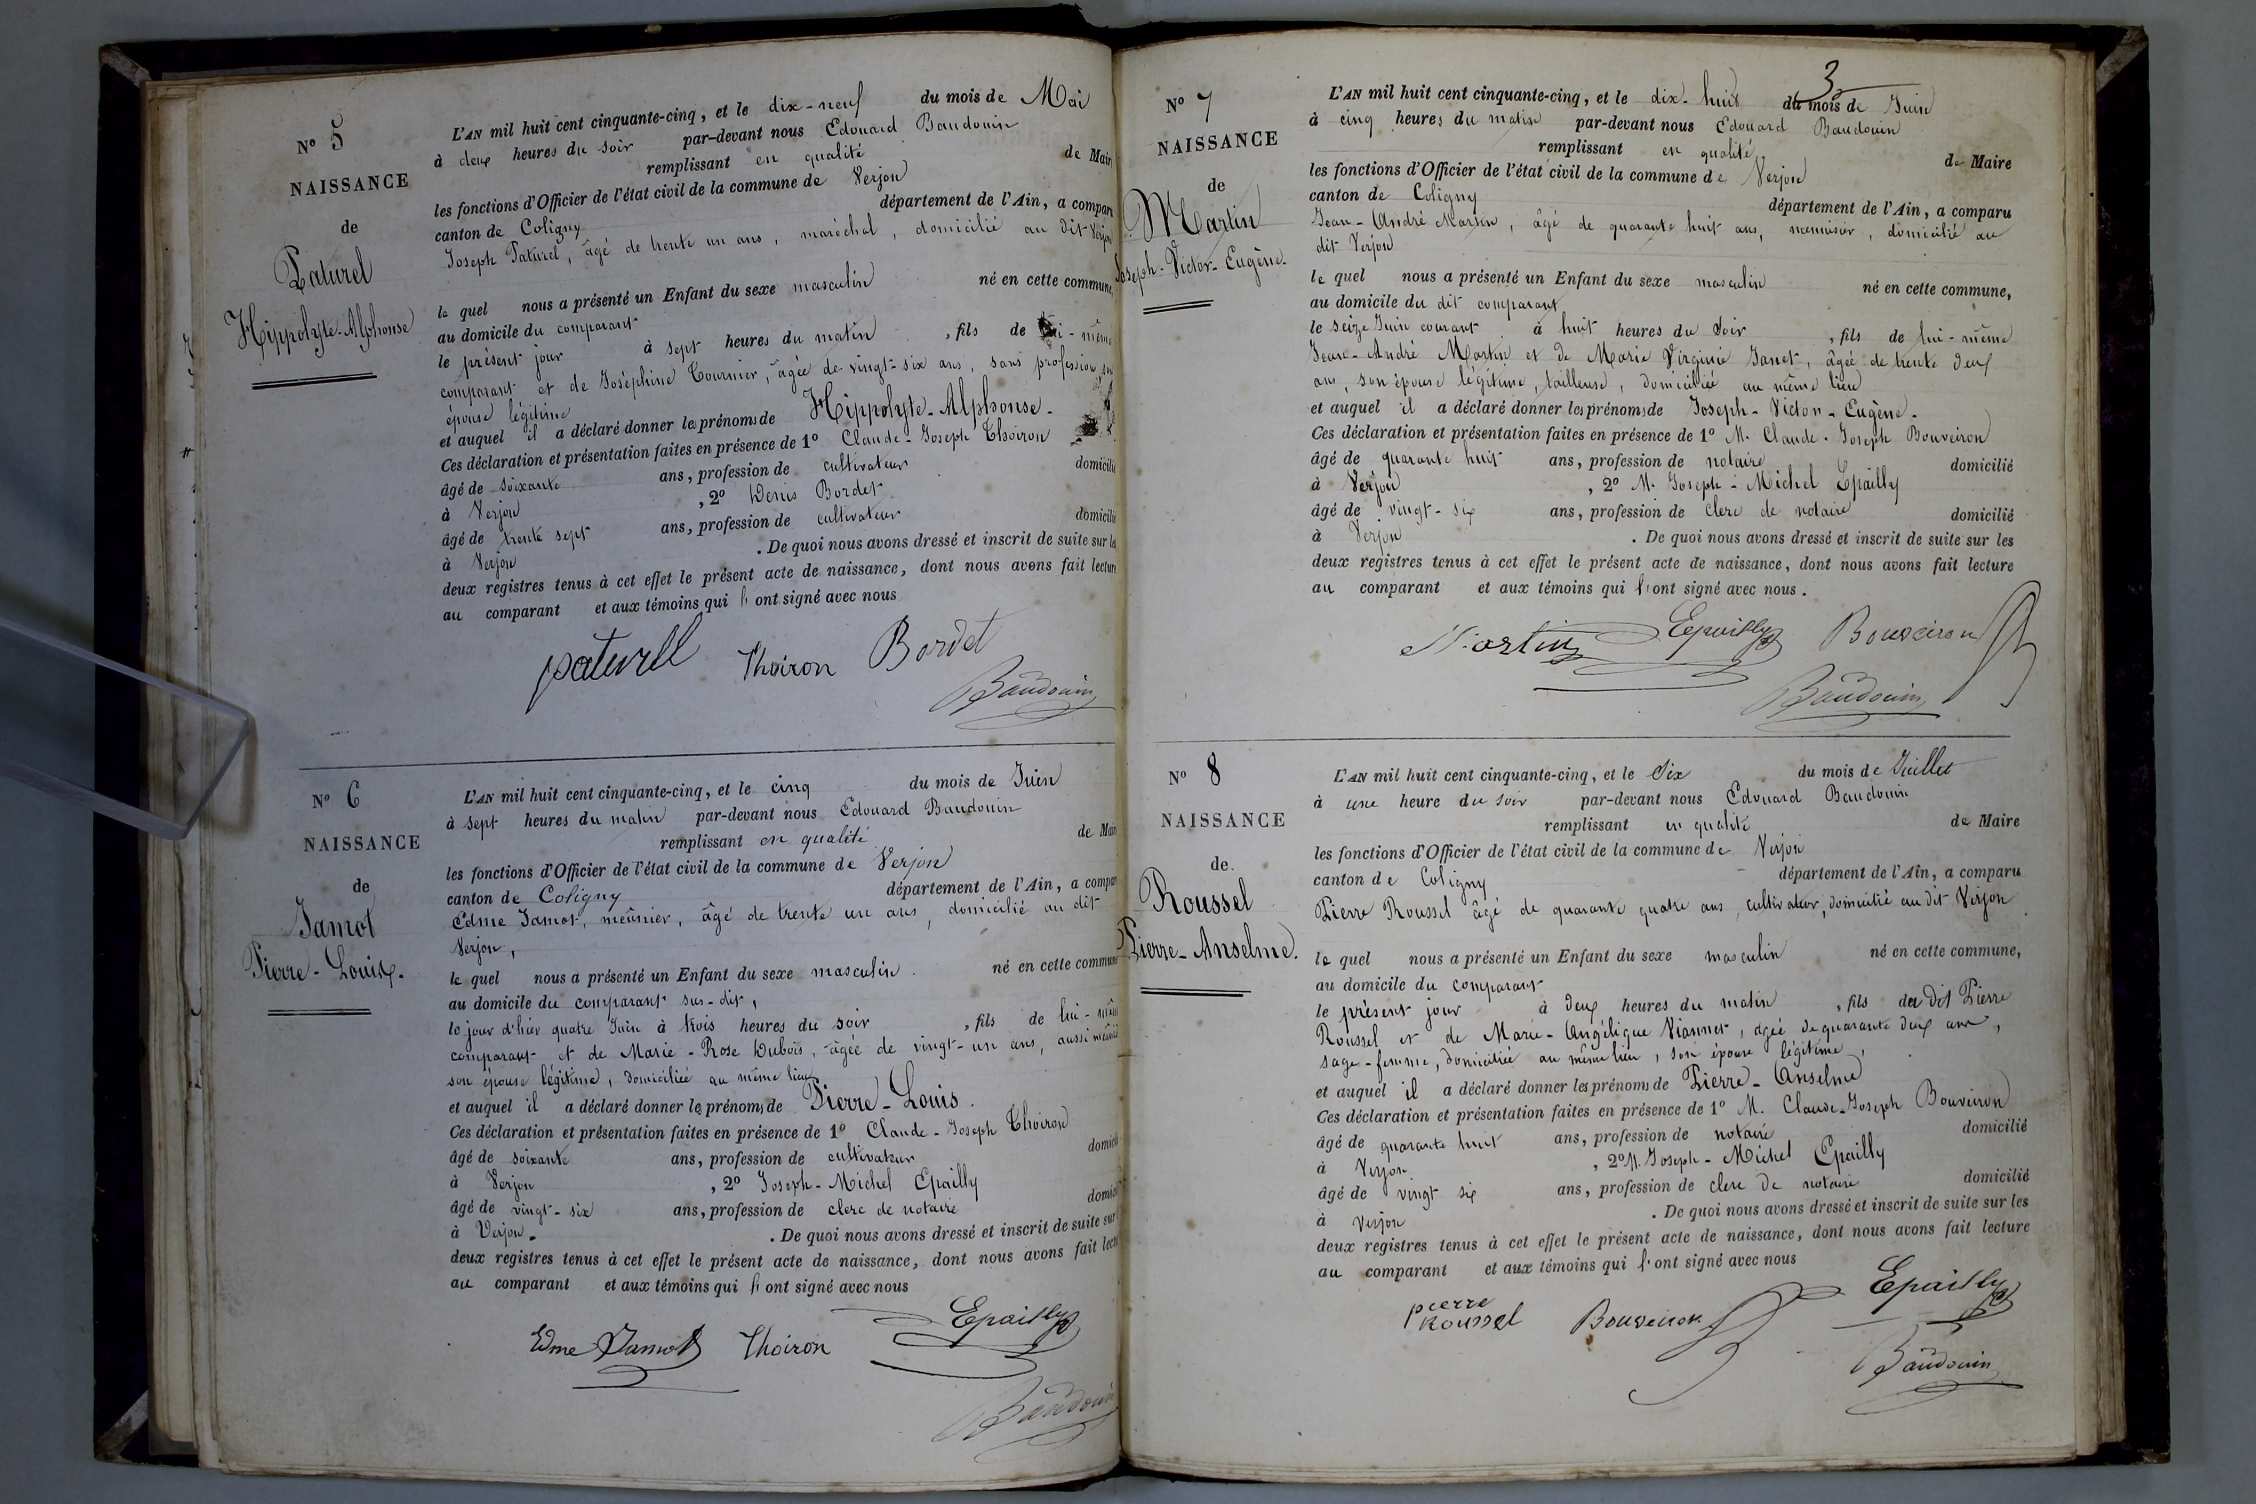 N° 5
NAISSANCE
de
Paturel
Hippolyte-Alphonse
L'AN mil huit cent cinquante-cinq, et le dix-neuf du mois de Mai
à deux heures du soir par-devant nous Edouard Baudouin
remplissant en qualité de Mair
les fonctions d'Officier de l'état civil de la commune de Verjon
canton de Coligny département de l'Ain, a compar
Joseph Paturel, âgé de trente un ans, maréchal, domicilié au dit Verjon
le quel nous a présenté un Enfant du sexe masculin né en cette commune,
au domicile du comparant
le présent jour à sept heures du matin, fils de lui-même
comparant et de Joséphine Tournier, âgée de vingt-six ans, sans profession, son
épouse légitime
et auquel il a déclaré donner les prénoms de Hippolyte-Alphonse.
Ces déclaration et présentation faites en présence de 1° Claude-Joseph Thoiron
âgé de soixante ans, profession de cultivateur domicilié
à Verjon, 2° Denis Bordet
âgé de trente sept ans, profession de cultivateur domicilié
à Verjon. De quoi nous avons dressé et inscrit de suite sur les
deux registres tenus à cet effet le présent acte de naissance, dont nous avons fait lecture
au comparant et aux témoins qui l'ont signé avec nous
paturel Thoiron Bordet
Baudouin
N° 6
NAISSANCE
de
Jamot
Pierre-Louis.
L'AN mil huit cent cinquante-cinq, et le cinq du mois de Juin
à sept heures du matin par-devant nous Edouard Baudouin
remplissant en qualité de Mair
les fonctions d'Officier de l'état civil de la commune de Verjon
canton de Coligny département de l'Ain, a compar
Edme Jamot, meûnier, âgé de trente un ans, domicilié au dit
Verjon,
le quel nous a présenté un Enfant du sexe masculin. né en cette commune
au domicile du comparant sus-dit,
le jour d'hier quatre Juin à trois heures du soir, fils de lui-même
comparant et de Marie-Rose Dubois, âgée de vingt-un ans, aussi
son épouse légitime, domiciliée au même lieu
et auquel il a déclaré donner les prénoms de Pierre-Louis.
Ces déclaration et présentation faites en présence de 1° Claude-Joseph Thoiron
âgé de soixante ans, profession de cultivateur domicili
à Verjon, 2° Joseph-Michel Epailly
âgé de vingt-six ans, profession de clerc de notaire domicil
à Verjon. De quoi nous avons dressé et inscrit de suite sur
deux registres tenus à cet effet le présent acte de naissance, dont nous avons fait lectu
au comparant et aux témoins qui l'ont signé avec nous
Edme Jamot Thoiron Epailly
Baudouin
3
N° 7
NAISSANCE
de
Martin
Joseph-Victor-Eugène.
L'AN mil huit cent cinquante-cinq, et le dix-huit du mois de Juin
à cinq heures du matin par-devant nous Edouard Baudouin
remplissant en qualité de Maire
les fonctions d'Officier de l'état civil de la commune de Verjon
canton de Coligny département de l'Ain, a comparu
Jean-André Martin, âgé de quarante huit ans, menuisier, domicilié au
dit Verjon
le quel nous a présenté un Enfant du sexe masculin né en cette commune,
au domicile du dit comparant
le seize Juin courant à huit heures du soir, fils de lui-même
Jean-André Martin et de Marie Virginie Janet, âgée de trente deux
ans, son épouse légitime, tailleuse, domiciliée au même lieu
et auquel il a déclaré donner les prénoms de Joseph-Victor-Eugène.
Ces déclaration et présentation faites en présence de 1° M. Claude-Joseph Bouveiron
âgé de quarante huit ans, profession de notaire domicilié
à Verjon, 2° M. Joseph-Michel Epailly
âgé de vingt-six ans, profession de clerc de notaire domicilié
à Verjon. De quoi nous avons dressé et inscrit de suite sur les
deux registres tenus à cet effet le présent acte de naissance, dont nous avons fait lecture
au comparant et aux témoins qui l'ont signé avec nous.
Martin Epailly Bouveiron
Baudouin
N° 8
NAISSANCE
de
Roussel
Pierre-Anselme.
L'AN mil huit cent cinquante-cinq, et le Six du mois de Juillet
à une heure du soir par-devant nous Edouard Baudouin
remplissant en qualité de Maire
les fonctions d'Officier de l'état civil de la commune de Verjon
canton de Coligny département de l'Ain, a comparu
Pierre Roussel âgé de quarante quatre ans, cultivateur, domicilié au dit Verjon
le quel nous a présenté un Enfant du sexe masculin né en cette commune,
au domicile du comparant
le présent jour à deux heures du matin, fils du dit Pierre
Roussel et de Marie-Angélique Viannet, âgée de quarante deux ans,
sage-femme, domiciliée au même lieu, son épouse légitime,
et auquel il a déclaré donner les prénoms de Pierre-Anselme
Ces déclaration et présentation faites en présence de 1° M. Claude-Joseph Bouveiron
âgé de quarante huit ans, profession de notaire domicilié
à Verjon, 2° M. Joseph-Michel Epailly
âgé de vingt six ans, profession de clerc de notaire domicilié
à Verjon. De quoi nous avons dressé et inscrit de suite sur les
deux registres tenus à cet effet le présent acte de naissance, dont nous avons fait lecture
au comparant et aux témoins qui l'ont signé avec nous
pierre Roussel Bouveiron Epailly
Baudouin